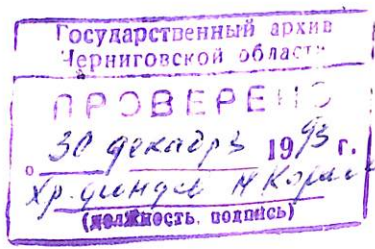 Государственный архив
Черниговской области
ПРОВЕРЕНО
30 декабрь 1993 г.
Хр. фондов
(должность, подпись)